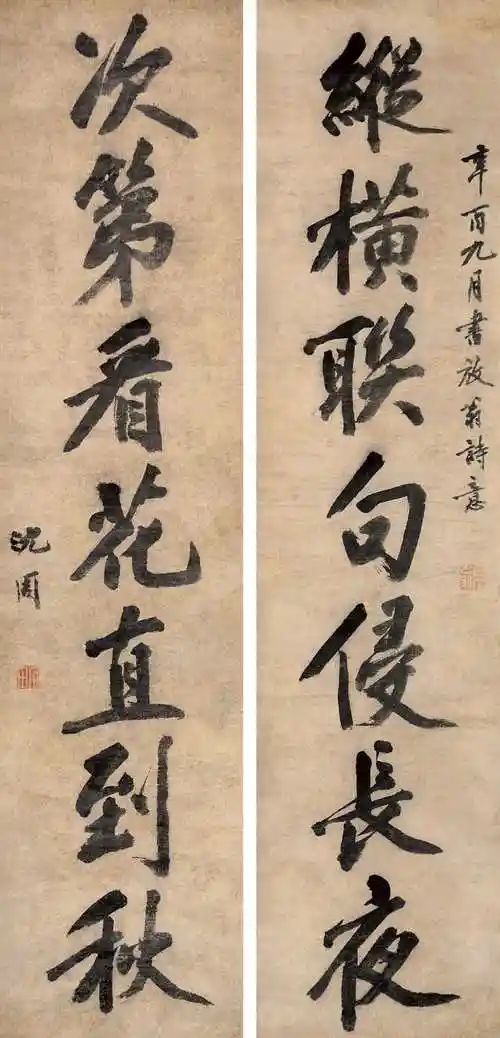 辛酉九月書放翁詩意
縱橫聯句侵長夜
次第看花直到秋
沈周